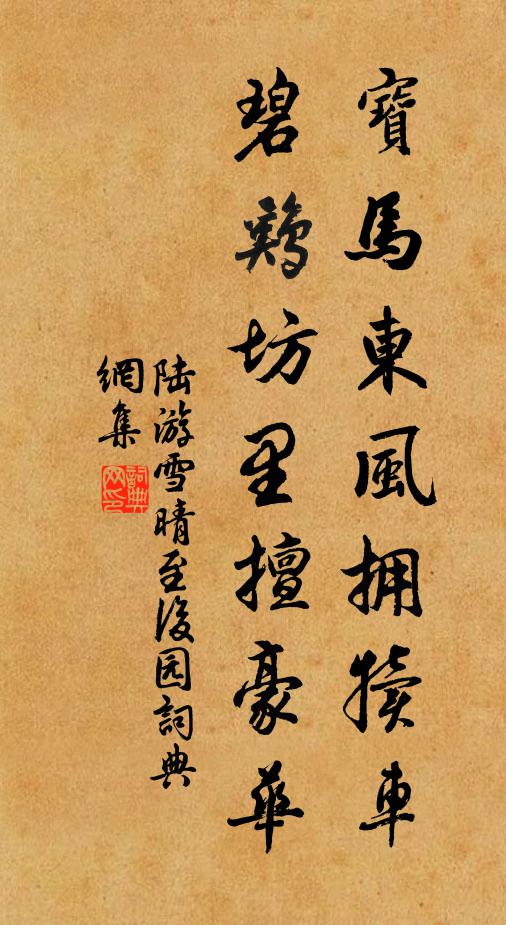 寶馬東風拥犢車
碧鷄坊里擅豪華
陆游雪晴至後园詞典
網集
詞典
网印